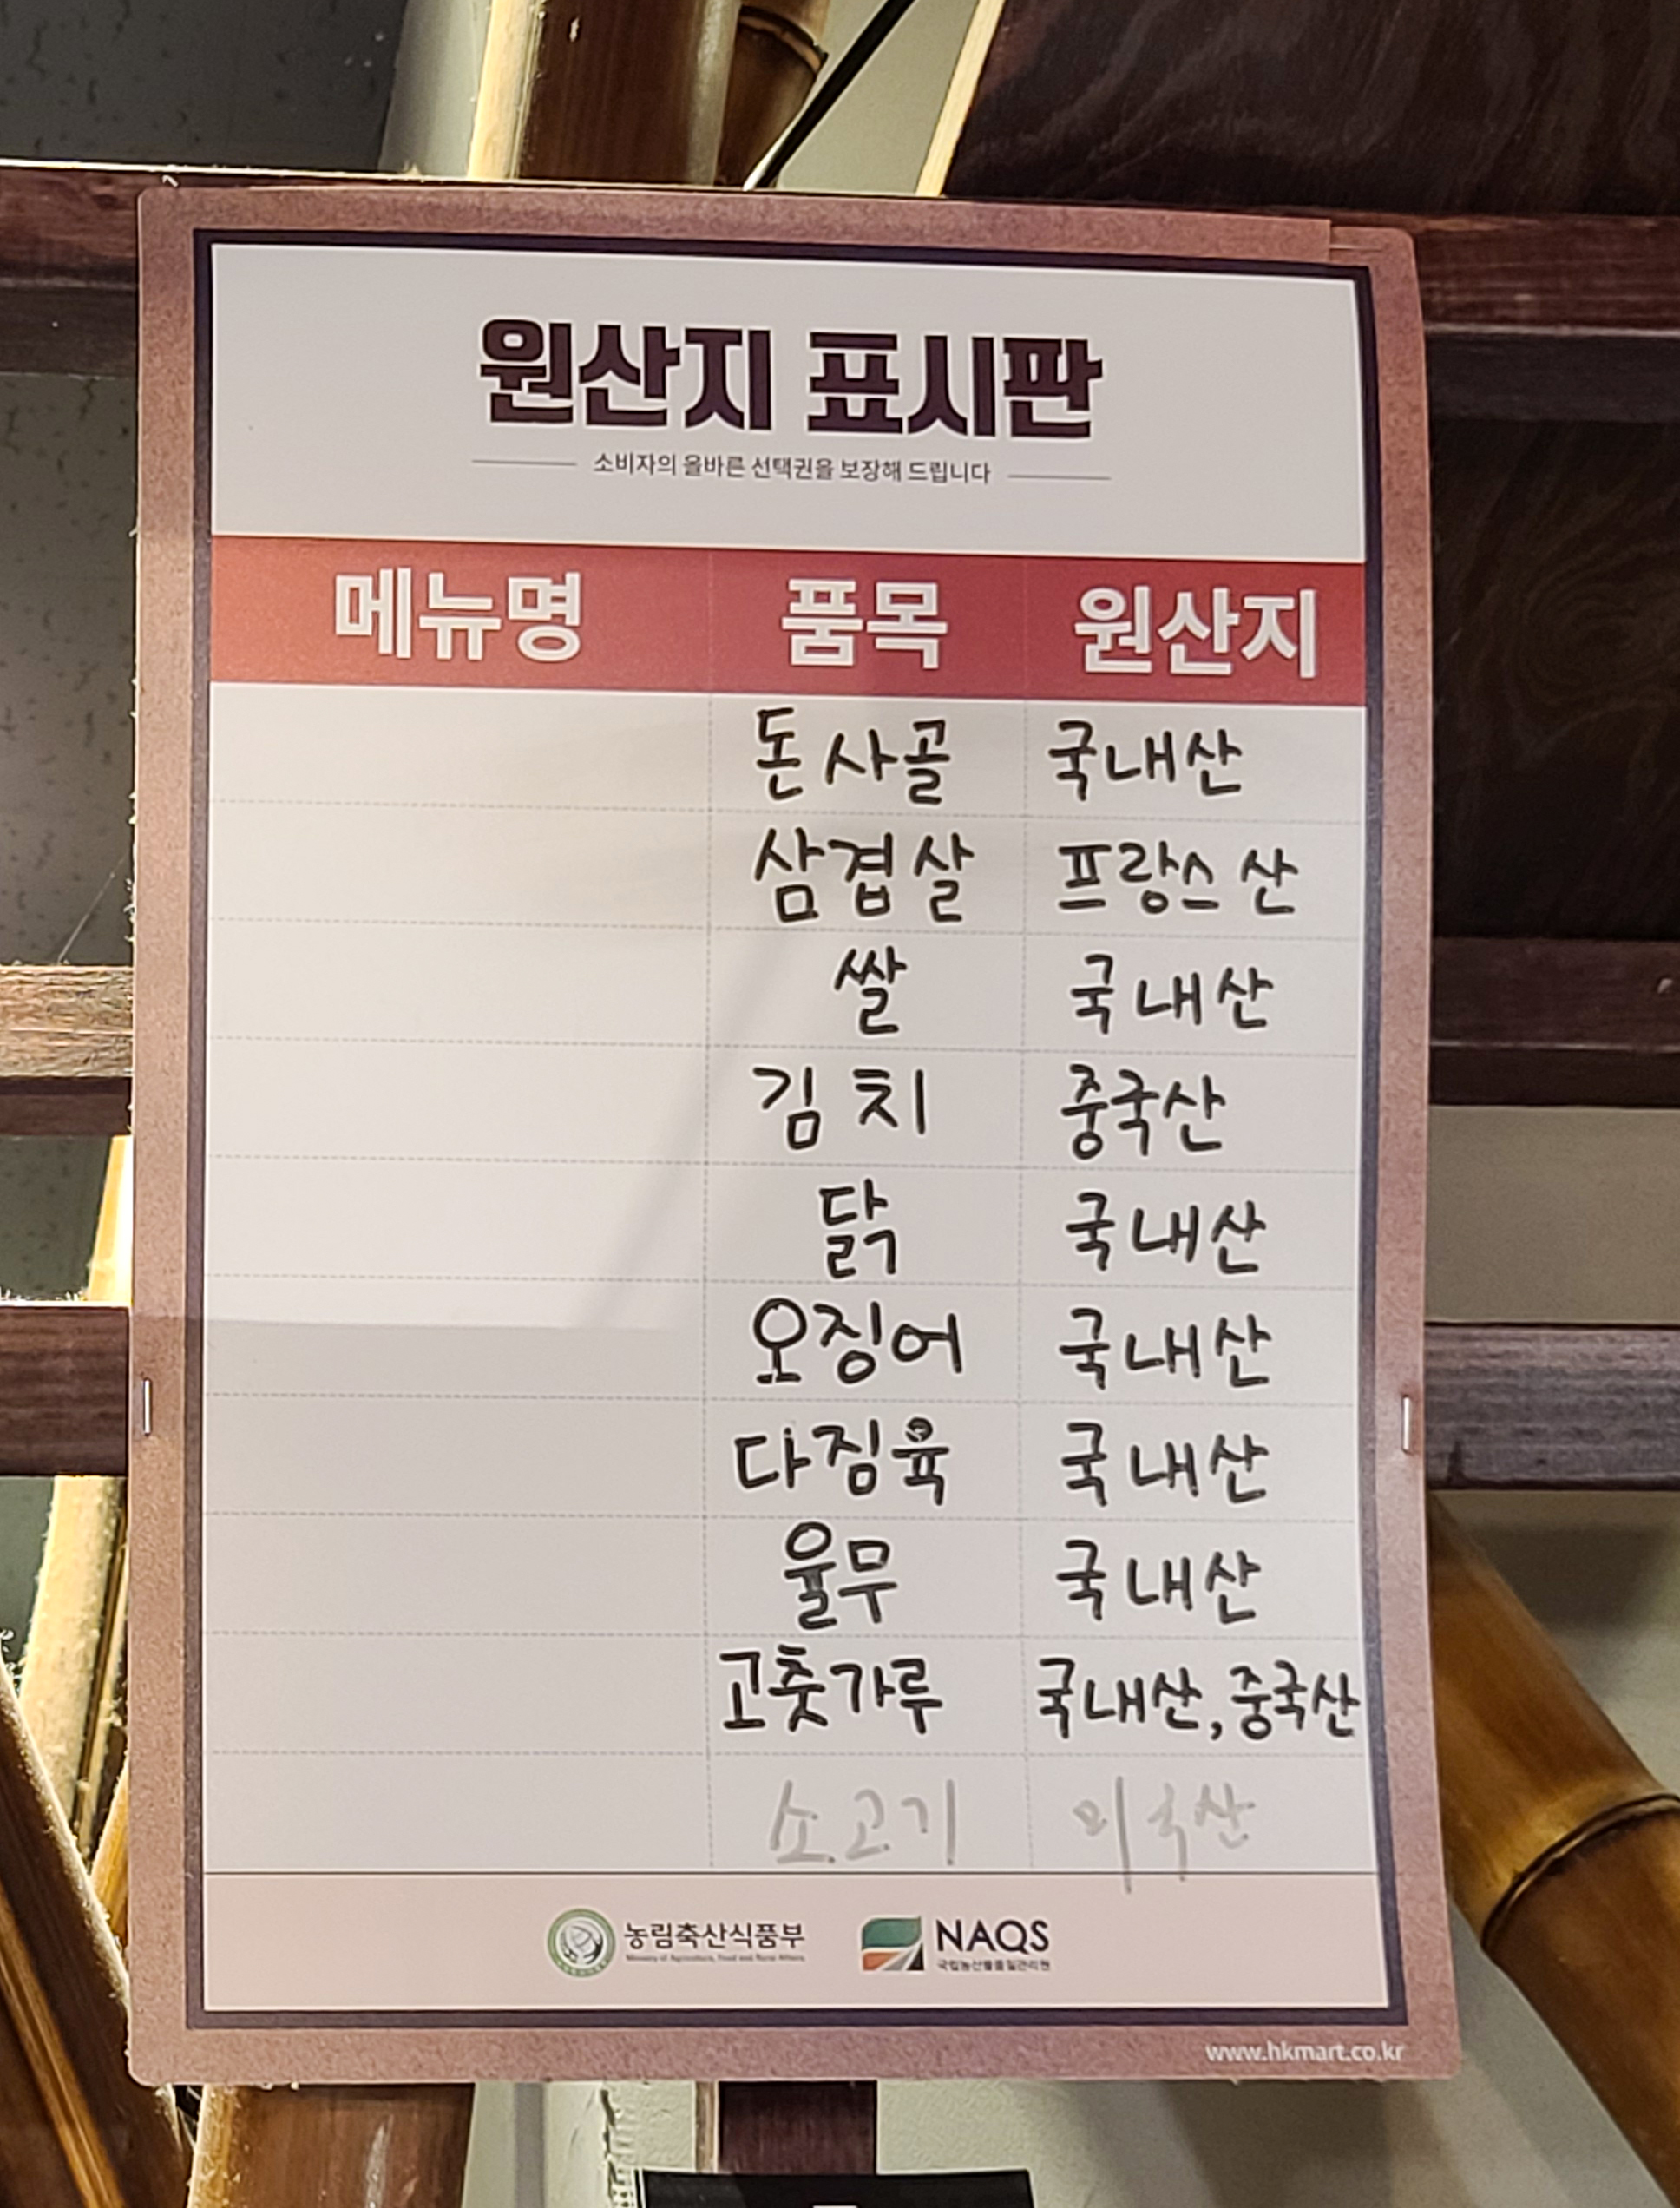 원산지 표시판
소비자의 올바른 선택권을 보장해 드립니다
메뉴명 품목 원산지
돈사골 국내산
삼겹살 프랑스산
쌀 국내산
김치 중국산
닭 국내산
오징어 국내산
다짐육 국내산
율무 국내산
고춧가루 국내산, 중국산
소고기 미국산
농림축산식품부 NAQS
Ministry of Agriculture, Food and Rural Affairs 국립농산물품질관리원
www.hkmart.co.kr